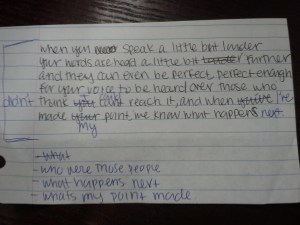 when you speak a little bit louder
your words are heard a little bit further
and they can even be perfect, perfect enough
for your voice to be heard over those who
didn't think you could reach it, and when you've I've
made your my point, we know what happens next
- what
- who were those people
- what happens next
- whats my point made